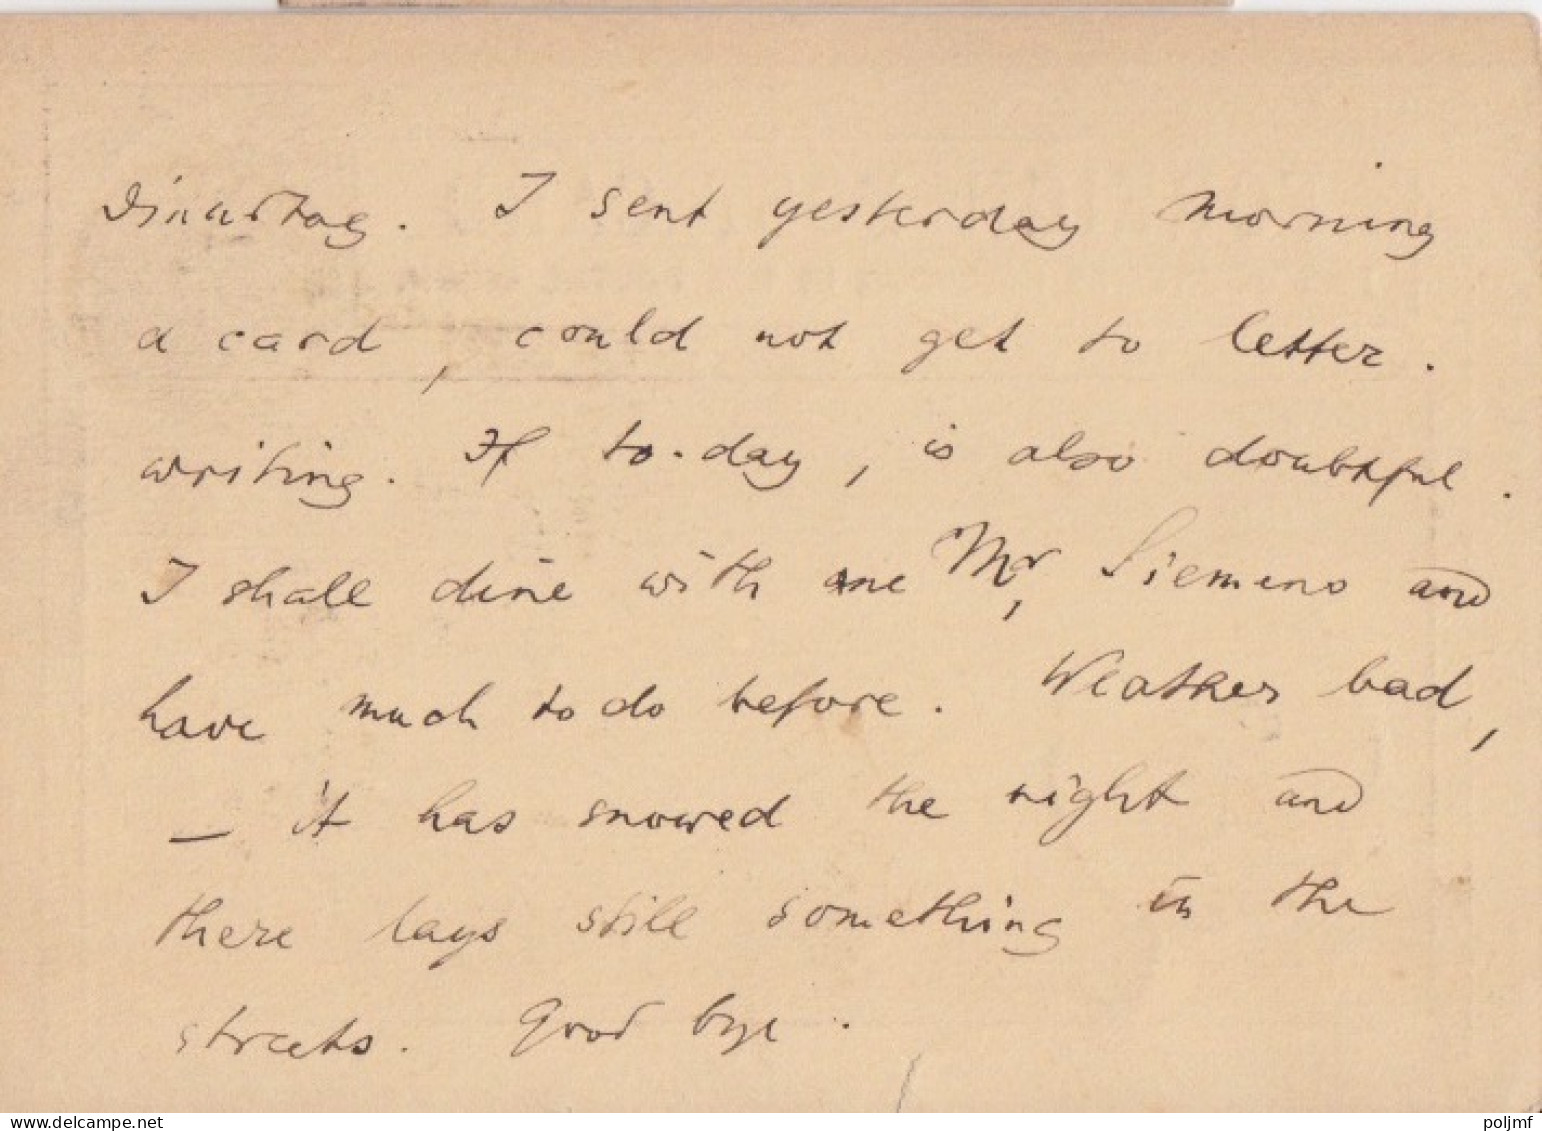 Dinnstag. I sent yesterday morning
a card, could not get to letter.
writing. If to-day, is also doubtful.
I shall dine with one Mr, Siemens and
have much to do before. Weather bad,
— it has snowed the night and
there lays still something in the
streets. Good bye.
www.delcampe.net
poljmf